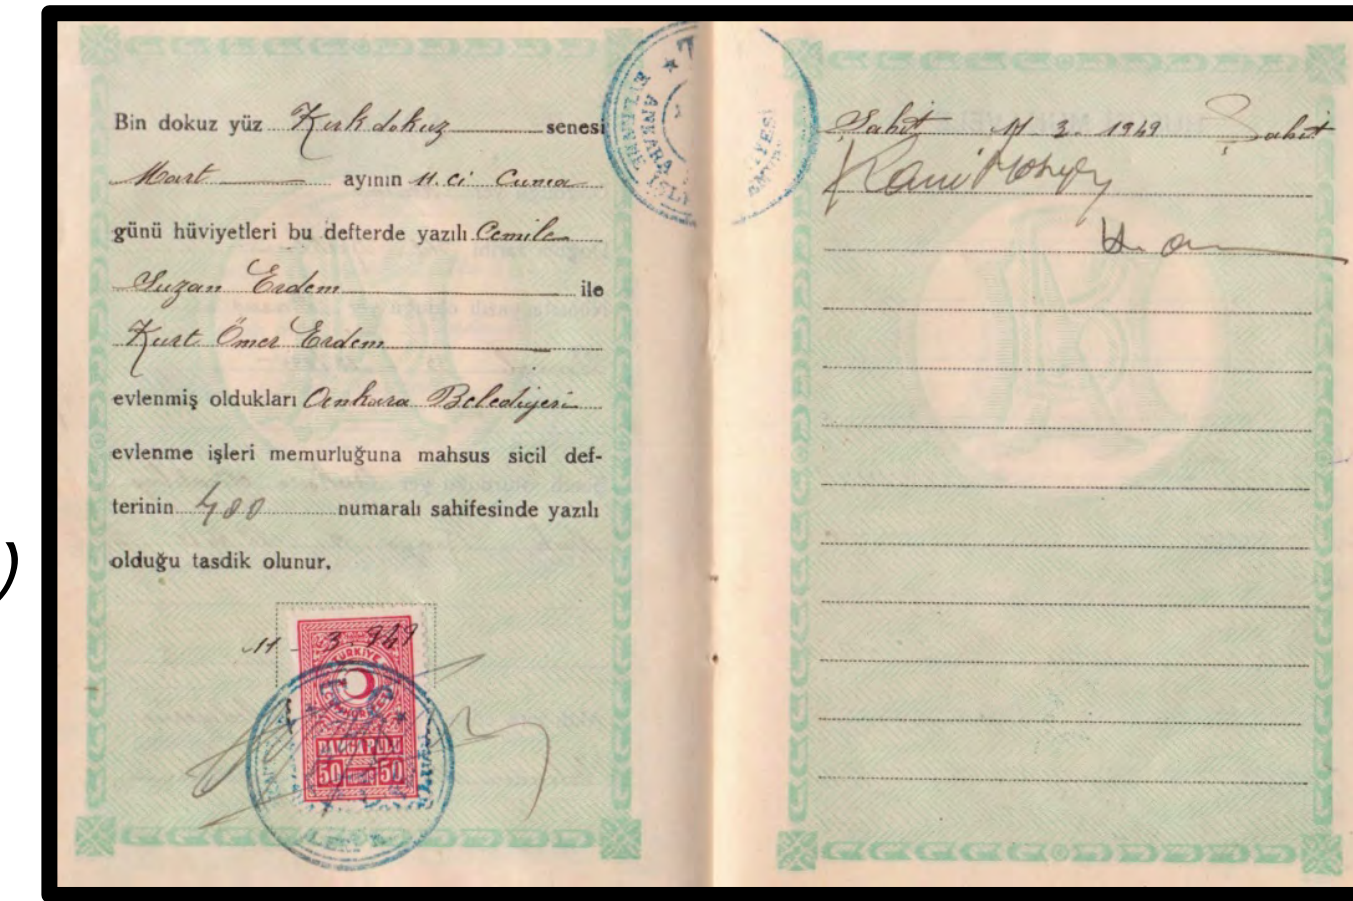 Bin dokuz yüz Kırk dokuz senesi
Mart ayının 11. ci Cuma
günü hüviyetleri bu defterde yazılı Cemile
Suzan Erdem ile
Kurt Ömer Erdem
evlenmiş oldukları Ankara Belediyesi
evlenme işleri memurluğuna mahsus sicil def-
terinin numaralı sahifesinde yazılı
olduğu tasdik olunur.
11 - 3 - 949
TÜRKİYE
DAMGA PULU
50 50
ANKARA
EVLENME İŞLE
Şahit 11 3. 1949 Şahit
Kani
)